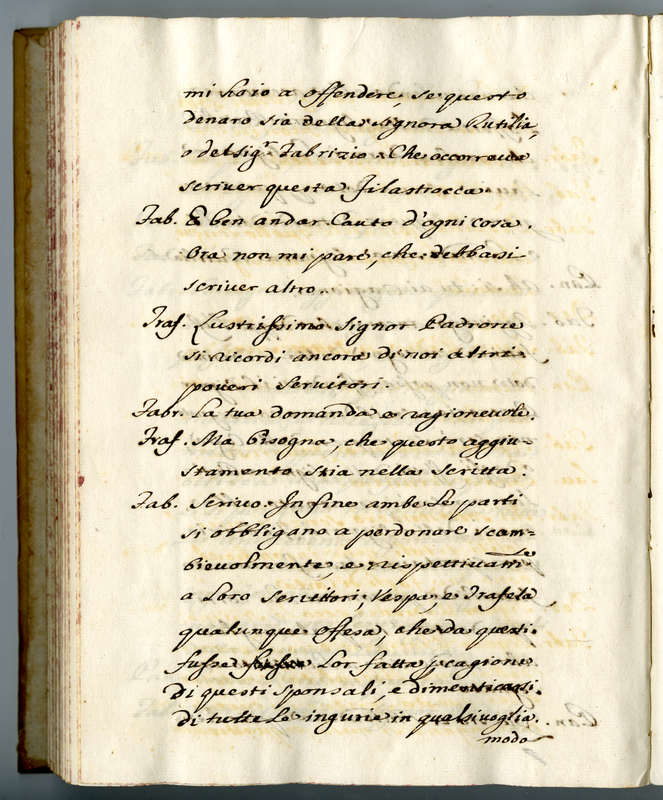 mi ho io a offendere, se questo
denaro sia della Signora Rutilia,
o del Sig.r Fabrizio. Che occorreva
scriver questa filastrocca.
Fab. È ben andar Cauto d'ogni cosa.
Ora non mi pare, che debbasi
scriver altro.
Traf. Lustrissimo Signor Padrone
si ricordi ancora di noi altri
poveri Servitori.
Fabr. La tua domanda e ragionevole.
Traf. Ma bisogna, che questo aggiu=
stamento stia nella Scritta.
Fab. Scrivo. In fine ambe le parti
si obbligano a perdonare scam=
bievolmente, e rispettivam.te
a Loro Servitori, Vespa, e Trafela
qualunque offesa, che da questi
fusse Lor fatta p cagione
di questi Sponsali, e dimenticarsi
di tutte le ingurie in qualsivoglia
modo